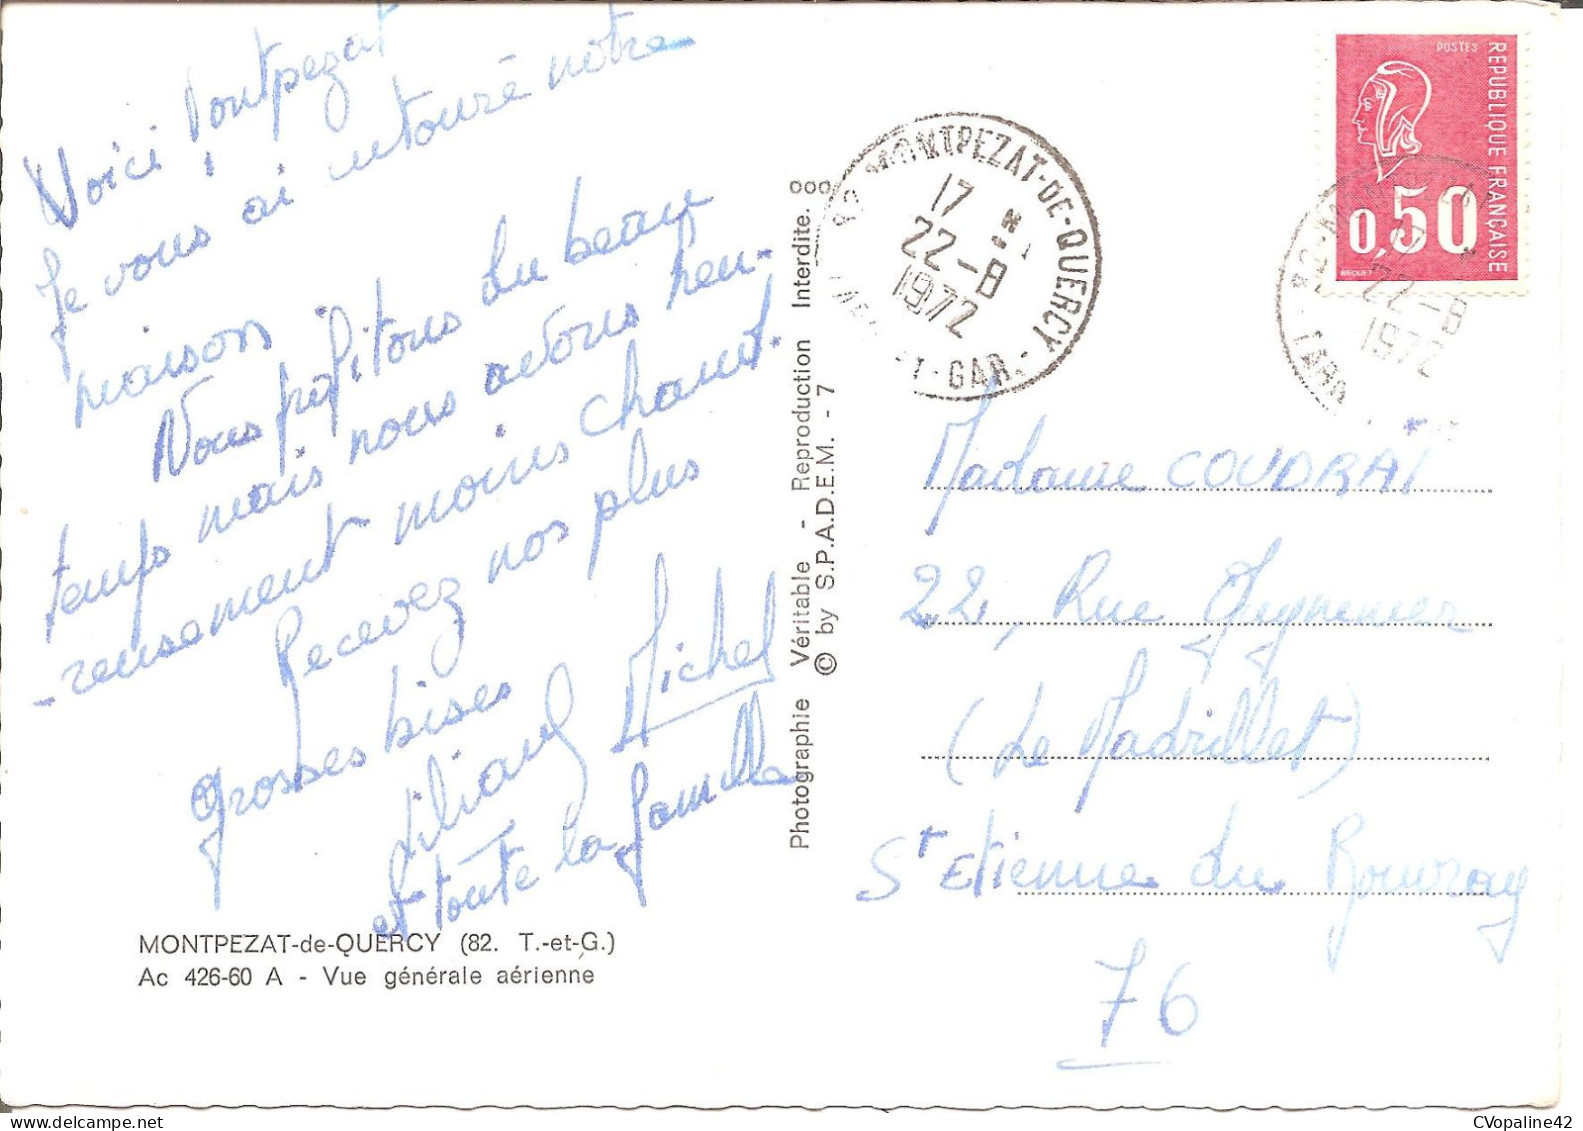 Voici Montpezat
Je vous ai entouré notre
maison.
Nous profitons du beau
temps mais nous avons heu-
-reusement moins chaud.
Recevez nos plus
grosses bises
Liliane Michel
et toute la famille
MONTPEZAT-de-QUERCY (82. T.-et-G.)
Ac 426-60 A - Vue générale aérienne
Photographie Véritable - Reproduction Interdite. 000
© by S.P.A.D.E.M. - 7
82 MONTPEZAT-DE-QUERCY
17 H
22-8
1972
TARN-ET-GAR.
POSTES
REPUBLIQUE FRANÇAISE
0,50
BEQUET
22-8
1972
TARN
Madame COUDRAI
22, Rue Guynemer
(Le Madrillet)
St Etienne du Rouvray
76
CVopaline42